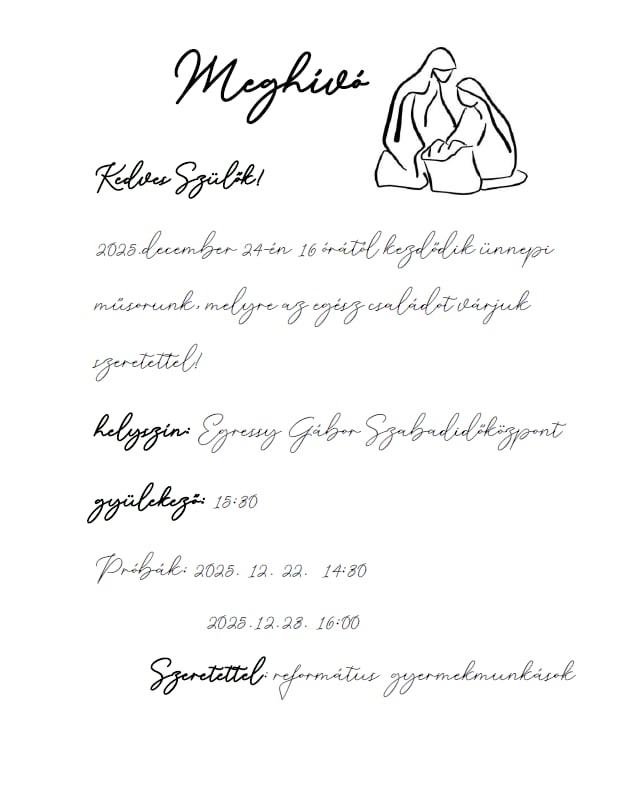 Meghívó
Kedves Szülők!
2025.december 24-én 16 órától kezdődik ünnepi
műsorunk, melyre az egész családot várjuk
szeretettel!
helyszín: Egressy Gábor Szabadidőközpont
gyülekező: 15:30
Próbák: 2025. 12. 22. 14:30
2025.12.23. 16:00
Szeretettel: református gyermekmunkások